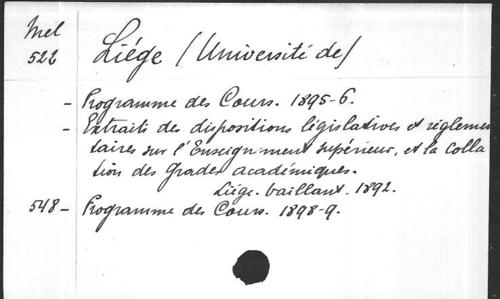 Mel
522 Liége (Université de)
- Programme des Cours. 1895-6.
- Extraits des dispositions législatives et réglemen
taires sur l'Enseignement supérieur, et la colla
tion des Grades académiques.
Liége. Vaillant. 1892.
548 - Programme des Cours. 1898-9.